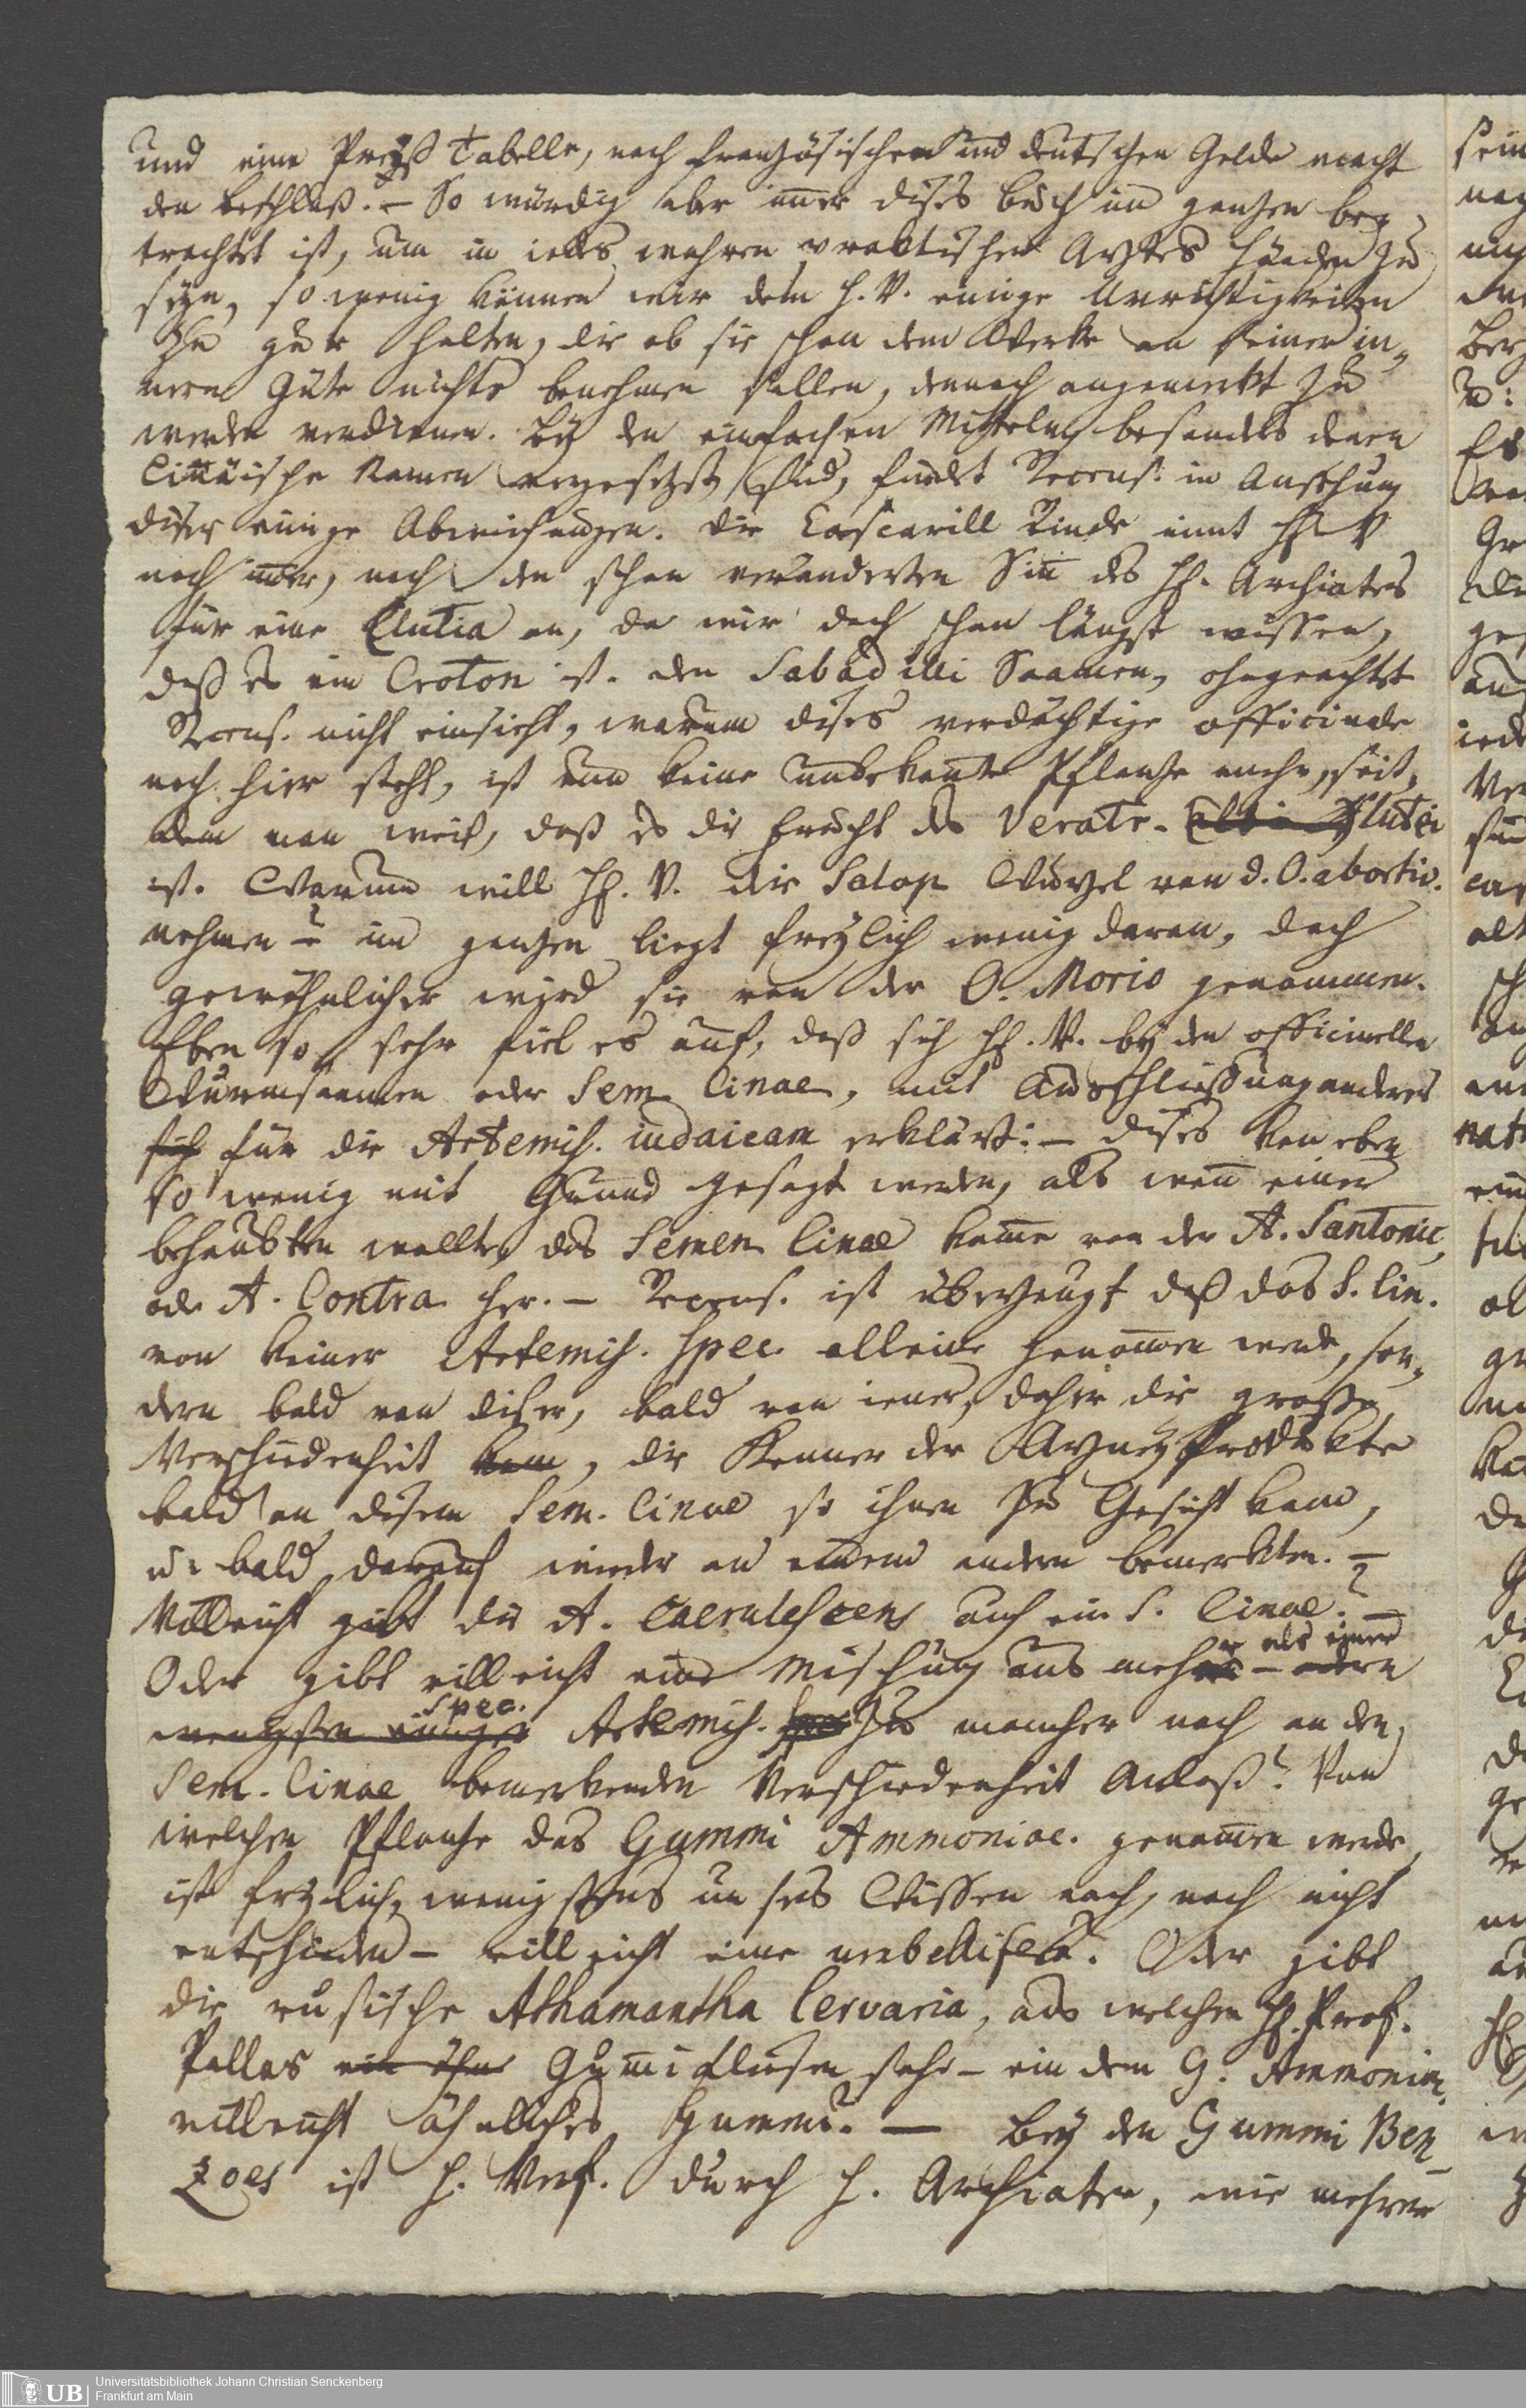 und eine Preyß Tabelle, nach französischen und deutschen Gelde macht
den Beschluß. – So würdig aber im̄er dises Buch im ganzen be,
trachtet ist, um in iedes wahren praktischen Arztes Händen zu
seyn, so wenig können wir dem H. V. einige Unrichtigkeiten
zu gute halten, die ob sie schon dem Werke an seiner in,
nern Güte nichts benehmen sollen, dennoch angemerkt zu
werden verdienen. Bey den einfachen Mitteln besonders denen
Lin̄äische Namen vorgesetzt sind, findet Recens. in Ansehung
diser einige Abweichungen. die Cascarill Rinde nimt H. V
noch im̄er, nach den schon veränderten Sin̄ des H. Archiaters
für eine Clutia an, da wir doch schon längst wissen,
daß es ein Croton ist. den Sabadilli Saamen, ohngeachtet
Recens. nicht einsieht, warum dises verdächtige officinale
noch hier steht, ist nun keine unbekante Pflanze mehr, seit,
dem man weis, daß es die Frucht des Veratr. lutei
ist. Warum will H. V. die Salap Wurzel von d. O. abortiv.
nehmen? – im ganzen liegt freylich wenig daran, doch
gewöhnlicher wird sie von der O. Morio genommen.
Eben so sehr fiel es auf, daß sich H. V. bey den officinellen
Wurmsaamen oder Sem. Cinae, mit Ausschliessung anderer
sich für die Artemis. iudaicam erklärt: – dises kan eben
so wenig mit Grund gesagt werden, als wen̄ einer
behaupten wollte, das Semen Cinae kom̄e von der A. Santonic,
ode A. Contra her. – Recens. ist überzeugt daß das S. Cin.
von keiner Artemis. Spec. alleine genom̄en werde, son,
dern bald von diser, bald von iener, daher die grosse
Verschiedenheit kam, die Kenner der Arzney Produkte
bald an disem Sem. Cinae so ihnen zu Gesicht kam,
u. bald darauf wieder an einem andern bemerkten. –
Villeicht gibt die A. Caerulescens auch ein S. Cinae? –
Oder gibt villeicht eine Mischung aus mehr als einer
Spec.
Artemis. zu mancher noch an den,
Sem. Cinae bemerkenden Verschiedenheit Anlaß? Von
welcher Pflanze das Gummi Ammoniac. genom̄en werde,
ist freylich, wenigstens unsers Wissen nach, noch nicht
entschieden – villeicht eine umbellifera? Oder gibt
die rusische Athamantha Cervaria, aus welcher H. Prof.
Pallas ein ihm Gum̄i fliesen sahe – ein dem G. Ammoniac.
villeicht ähnliches Gummi. — Bey den Gummi Ben,
zoes ist H. Verf. durch H. Archiater, wie mehrere
Universitätsbibliothek Johann Christian Senckenberg
Frankfurt am Main